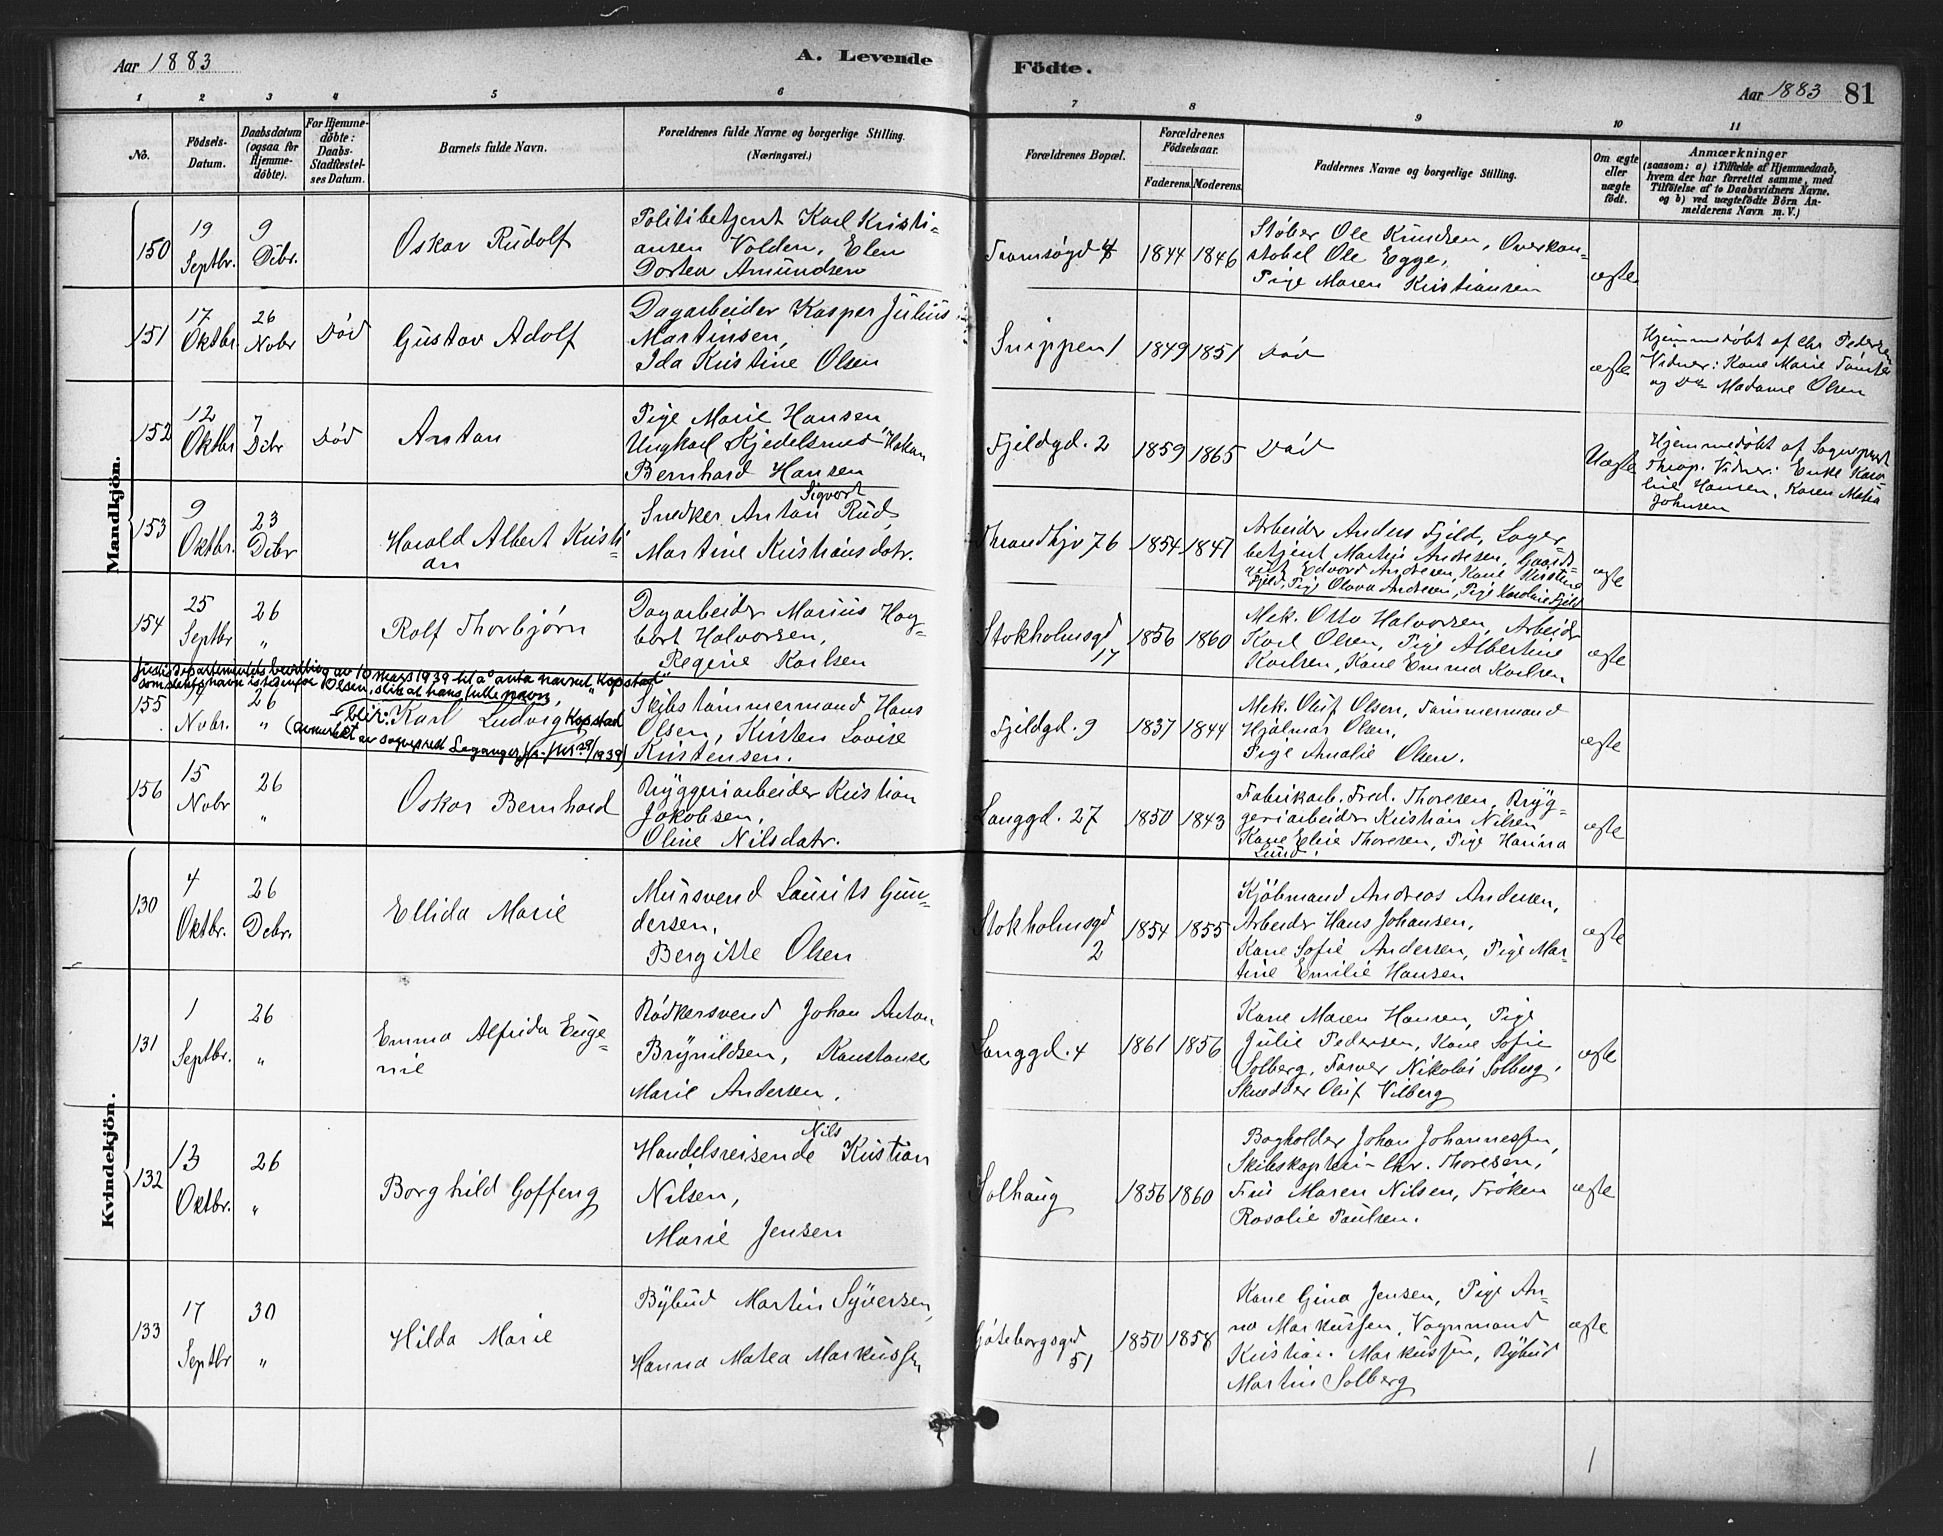 Aar 1883
A. Levende
Födte.
Aar 1883 81
1 2 3 4 5 6 7 8 9 10 11
No.
Födsels-
Datum.
Daabsdatum
(ogsaa for
Hjemme-
döbte).
For Hjemme-
döbte:
Daabs-
Stadfæstel-
ses Datum.
Barnets fulde Navn.
Forældrenes fulde Navne og borgerlige Stilling.
(Næringsvei.)
Forældrenes Bopæl.
Forældrenes
Födselsaar.
Faderens. Moderens.
Faddernes Navne og borgerlige Stilling.
Om ægte
eller
uægte
födt.
Anmærkninger
(saasom: a) i Tilfælde af Hjemmedaab,
hvem der har forrettet samme, med
Tilföielse af to Daabsvidners Navne,
og b) ved uægtefödte Börn An-
melderens Navn m. V.)
Mandkjön.
150
19
Septbr.
9
Dcbr.
Oskar Rudolf
Politibetjent Karl Kristi-
ansen Volden, Elen
Dortea Amundsen
Tromsøgd 4
1844 1846
Støber Ole Knudsen, Overkon-
stabel Ole Egge,
Pige Maren Kristiansen
ægte
151
17
Oktbr.
26
Novbr
Død
Gustav Adolf
Dagarbeider Kasper Julius
Martinsen,
Ida Kristine Olsen
Snippen 1
1849 1851
Død
ægte
Hjemmedøbt af Chr Pedersen
Vidner: Kone Marie
og Madame Olsen
152
12
Oktbr
7
Dcbr
Død
Anton
Pige Marie Hansen
Ungkarl Kjedelsmed Hakon
Bernhard Hansen
Fjeldgd. 2
1859 1865
Død
Uægte
Hjemmedøbt af Sognepræst
Throp. Vidner: Enke Karo-
line Hansen, Karen Mathea
Johnsen
153
9
Oktbr.
23
Dcbr
Harald Albert Kristi-
an
Sigvart
Snedker Anton Rud,
Martine Kristiansdatr.
Throndhjv 76
1854 1847
Arbeider Anders Fjeld, Lager-
betjent Martin Andresen, Gaards-
gut Edvard Andresen, Kone Kirstine
Fjeld, Pige Olava Andresen, Pige Karoline Fjeld
ægte
154
25
Septbr
26
"
Rolf Thorbjørn
Dagarbeider Marius Hag-
bart Halvorsen,
Regine Karlsen
Stokholmsgd
17
1856 1860
Mek. Otto Halvorsen, Arbeider
Karl Olsen, Pige Albertine
Karlsen, Kone Emma Karlsen
ægte
Justisdepartementets bevilling av 10 mars 1939 til å anta navnet "Kopstad"
som slektsnavn istedenfor Olsen, slik at hans fulle navn
155
Novbr.
26
"
blir: Karl Ludvig Kopstad
(anmerket av sogneprest 1939)
Skibstømmermand Hans
Olsen, Kirsten Lovise
Kristensen.
Fjeldgd. 9
1837 1844
Mek. Oluf Olsen, Tømmermand
Hjalmar Olsen,
Pige Amalie Olsen.
ægte
156
15
Novbr
26
"
Oskar Bernhard
Bryggeriarbeider Kristian
Jakobsen,
Oline Nilsdatr.
Langgd. 27
1850 1843
Fabrikarb. Fred. Thoresen, Bryg-
geriarbeider Kristian Nilsen
Kone Elise Thoresen, Pige Hanna
Lund.
ægte
Kvindekjön.
130
4
Oktbr.
26
Debr.
Ellida Marie
Mursvend Laurits Gun-
dersen,
Bergitte Olsen
Stokholmsgd
2
1854 1855
Kjøbmand Andreas Andersen,
Arbeider Hans Johansen,
Kone Sofie Andersen, Pige Mar-
tine Emilie Hansen
ægte
131
1
Septbr.
26
"
Emma Alfrida Euge-
nie
Bødkersvend Johan Anton
Brynildsen, Konstanse
Marie Andersen.
Langgd. 4
1861 1856
Kone Maren Hansen, Pige
Julie Pedersen, Kone Sofie
Solberg, Farver Nikolai Solberg,
Skrædder Oluf Vilberg
ægte
132
13
Oktbr.
26
"
Borghild Goffeng
Nils
Handelsreisende Kristian
Nilsen,
Marie Jensen
Solhaug
1856 1860
Bogholder Johan Johannessen,
Skibskaptein Chr. Thoresen,
Fru Maren Nilsen, Frøken
Rosalie Paulsen.
ægte
133
17
Septbr
30
"
Hilda Marie
Bybud Martin Syversen,
Hanna Matea Markussen
Gøteborgsgd
51
1850 1858
Kone Gina Jensen, Pige An-
na Markussen, Vognmand
Kristian Markussen, Bybud
Martin Solberg
ægte
1